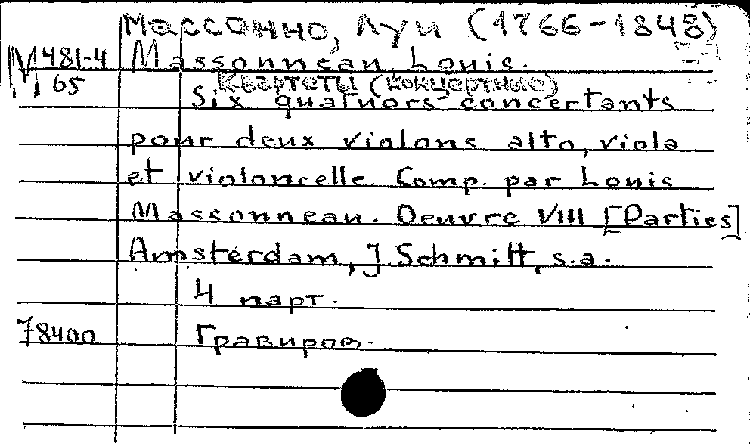 Массонно, Луи (1766-1848)
М 481-4 Massonneau, Louis.
65 Квартеты (концертные)
Six quatuors concertants
pour deux violons alto, viola
et violoncelle Comp. par Louis
Massonneau. Oeuvre VIII [Parties]
Amsterdam, J. Schmitt, s.a.
4 парт.
78400 Гравиров.